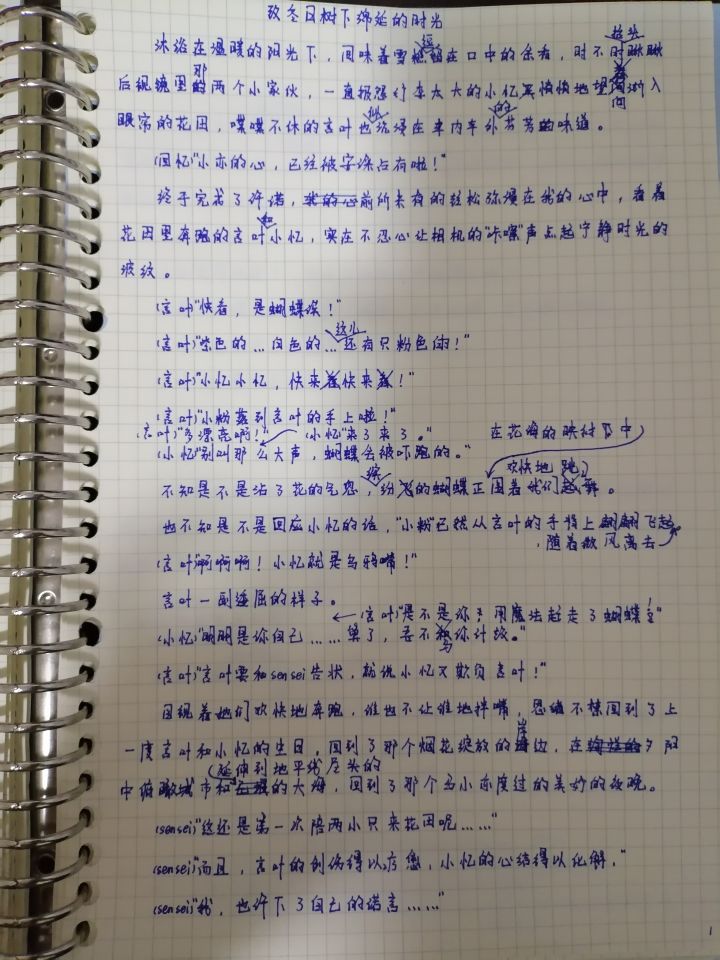 致冬日树下绵延的时光
沐浴在温暖的阳光下，回味着雪糕在口中的余香，时不时抬头瞅瞅
后视镜里那两个小家伙，一直抱怨行李太大的小忆，愉快地望向渐入
眼帘的花田，喋喋不休的言叶也沉浸在车内车外芬芳的味道。
(回忆)"小亦的心，已经被安涂占有啦！"
终于完成了许诺，前所未有的轻松弥漫在我的心中，看着
花田里奔跑的言叶和小忆，实在不忍心让相机的"咔嚓"声点起宁静时光的
波纹。
(言叶)"快看，是蝴蝶诶！"
(言叶)"紫色的…白色的…这儿还有只粉色的！"
(言叶)"小忆小忆，快来快来！"
(言叶)"小粉落到言叶的手上啦！"
(言叶)"多漂亮啊！" (小忆)"来了来了。"
(小忆)"别叫那么大声，蝴蝶会被吓跑的。"
不知是不是沾了花的气息，缤纷的蝴蝶正在花海的映衬中围着我们欢快地跳舞。
也不知是不是回应小忆的话，"小粉"已然从言叶的手背上翩翩飞起，随着微风离去。
(言叶)"啊啊啊！小忆就是乌鸦嘴！"
言叶一副委屈的样子。
(言叶)"是不是你！用魔法赶走了蝴蝶！"
(小忆)"明明是你自己……算了，吾不与你计较。"
(言叶)"言叶要和sensei告状，就说小忆又欺负言叶！"
回视着她们欢快地奔跑，谁也不让谁地拌嘴，思绪不禁回到了上
一度言叶和小忆的生日，回到了那个烟花绽放的岸边，在夕阳
中俯瞰城市和延伸到地平线尽头的大海，回到了那个与小亦度过的美妙的夜晚。
(sensei)"这还是第一次陪两小只来花田呢……"
(sensei)"而且，言叶的创伤得以疗愈，小忆的心结得以化解，"
(sensei)"我，也许下了自己的诺言……"
1